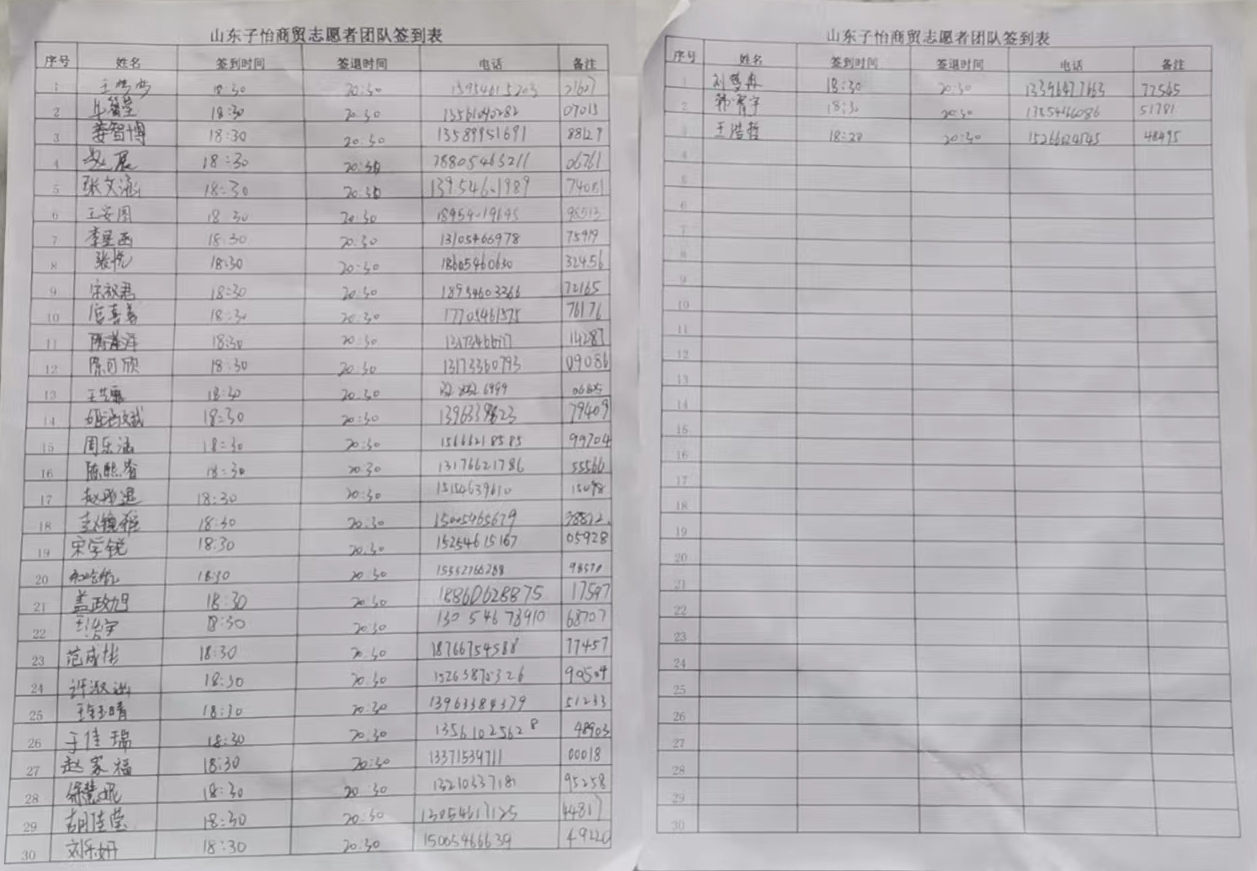 山东子怡商贸志愿者团队签到表
序号 姓名 签到时间 签退时间 电话 备注
1 18:30 20:30 13954615203
2 18:30 20:30 13561090282 07013
3 姜智博 18:30 20:30 13589951691 88129
4 赵展 18:30 20:30 18805463211 06761
5 张文涵 18:30 20:30 74081
6 王安国 18:30 20:30
7 李星函 18:30 20:30 13105466978 75919
8 张悦 18:30 20:30 18605460630 32456
9 宋淑君 18:30 20:30 18954603366 72165
10 18:30 20:30 17705461575 76176
11 18:30 20:30 14287
12 18:30 20:30 13173360793 09086
13 18:30 20:30
14 18:30 20:30 79409
15 周乐涵 18:30 20:30 15666218585 99704
16 陈熙睿 18:30 20:30 13176621786 55566
17 18:30 20:30 15154639610 15098
18 18:30 20:30 15005465679
19 宋学锐 18:30 20:30 15254615167 05928
20 18:30 20:30 15552760288
21 盖政旭 18:30 20:30 18860628875 17597
22 18:30 20:30 130 546 78910 68707
23 范成彬 18:30 20:30 18766754588 77457
24 许淑涵 18:30 20:30 90504
25 18:30 20:30 13963384379 51233
26 于佳瑞 18:30 20:30 13561025628 48903
27 赵家福 18:30 20:30 13371534711 00018
28 徐慧妮 18:30 20:30 13210337181 95258
29 胡佳莹 18:30 20:30 13054617125 44817
30 刘乐妍 18:30 20:30 15005466639 49220
山东子怡商贸志愿者团队签到表
序号 姓名 签到时间 签退时间 电话 备注
1 18:30 20:30 13396477663 77565
2 韩霄宇 18:30 20:30 13854466086 51781
3 王浩哲 18:20 20:30 48495
4
5
6
7
8
9
10
11
12
13
14
15
16
17
18
19
20
21
22
23
24
25
26
27
28
29
30